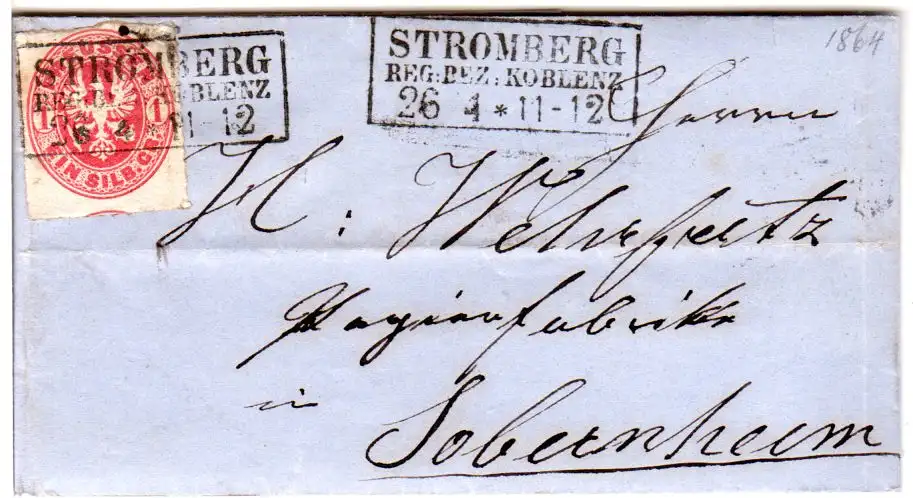 1864
STROMBERG
REG:BEZ:KOBLENZ
26 4 * 11-12
STROMBERG
REG:BEZ:KOBLENZ
26 4 * 11-12
1 1
EIN SILB.GR.
Herrn
H: Wehrfritz
Papierfabrik
in
Sobernheim